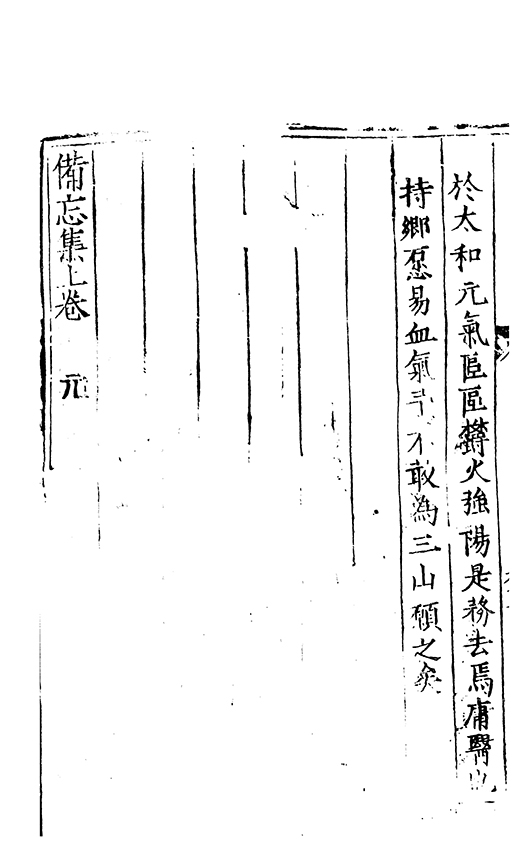 於太和元氣區區鑽火強陽是務去焉庸醫也
持鄉愿易血氣 不敢為三山願之矣
備忘集上卷 元